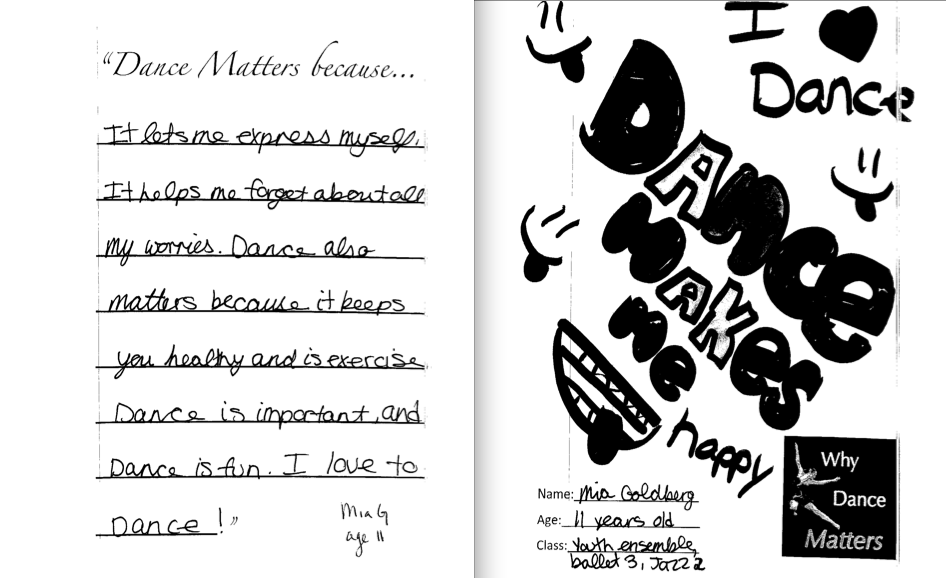 “Dance Matters because...
It lets me express myself.
It helps me forget about all
my worries. Dance also
matters because it keeps
you healthy and is exercise.
Dance is important, and
Dance is fun. I love to
Dance!”
Mia G
age 11
I ♥
Dance
DANCE
MAKES
me
happy
Name: Mia Goldberg
Age: 11 years old
Class: Youth ensemble,
ballet 3, Jazz 2
Why
Dance
Matters